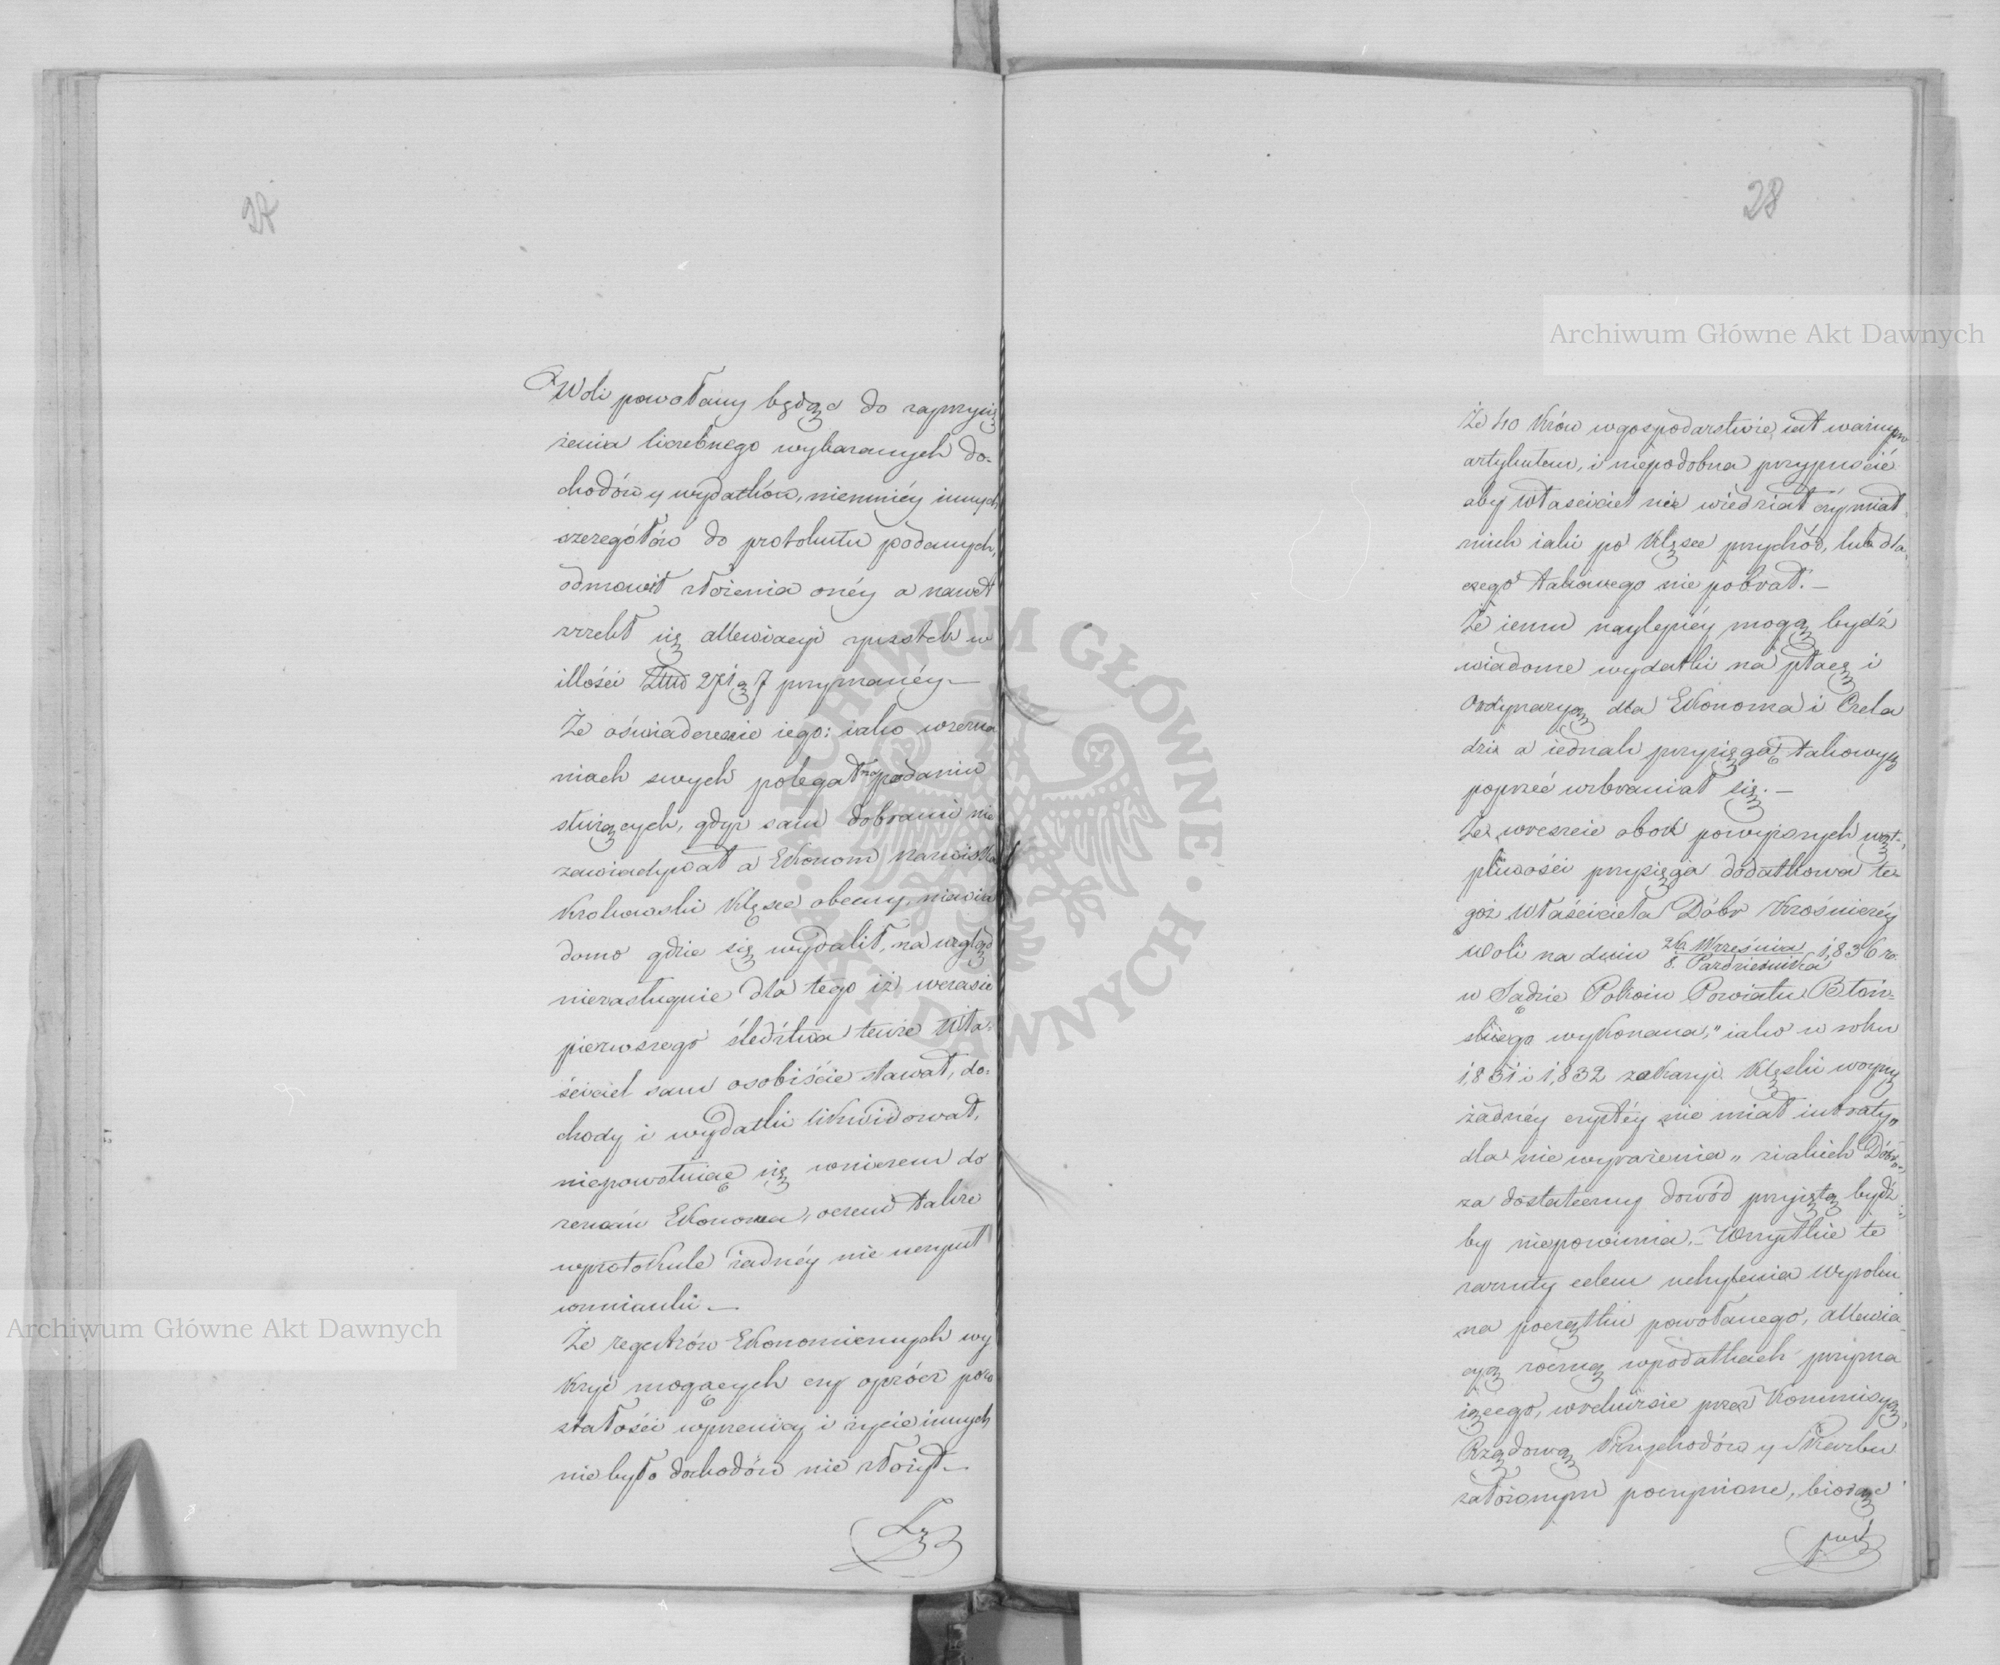 Woli powołany będąc do zaprzysię
żenia liczebnego wykazanych do-
chodów y wydatków, niemniéy innych
szczegółów do protokułu podanych,
odmówił złożenia onéy a nawet
zrzekł się allewiacyi zpustek w
illości 271 7 przyznanéy. —
Że oświadczenie iego: iako w zezna
niach swych polegał na podaniu
służących, gdyż sam dobrami nie
zawiadywał a Ekonom nazwiska
Krakowski Klęsce obecny, niewia
domo gdzie się wydalił, na wzgląd
niezasługuie dla tego iż w czasie
pierwszego śledztwa tenże Wła-
ściciel sam osobiście stawał, do-
chody i wydatki likwidował,
niepowołuiąc się w niczem do
zeznań Ekonoma, oczem także
w protokule żadnéy nie uczynił
wzmianki. —
Że regestrów Ekonomicznych wy
kryć mogących czy oprócz pozo
stałości w pszenicy i życie innych
niebyło dochodów nie złożył. —
Że
28
Że 40 Krów w gospodarstwie iest ważnym
artykułem, i niepodobna przypuścić
aby Właściciel nie wiedział czy miał
z nich iaki po Klęsce przychód, lub dla
czego takowego nie pobrał. —
Że iemu naylepiéy mogą bydź
wiadome wydatki na płacę i
Ordynaryą dla Ekonoma i Czela
dzi a iednak przysięgą takowych
poprzeć wzbraniał się. —
Że wreszcie obok powyższych wąt-
pliwości przysięga dodatkowa te
goż Właściciela Dóbr Krośniczéy
Woli na dniu 26 Września / 8. Pazdziernika 1,836 r.
w Sądzie Pokoiu Powiatu Błoń-
skiego wykonana, „iako w roku
1,831 i 1,832 z okazyi Klęski woyny
żadnéy czystéy nie miał intraty„
dla nie wyrażenia „z iakich Dóbr„
za dostateczny dowód przyiętą bydź
by niepowinna. — Wszystkie te
zarzuty celem uchylenia Wyroku
na początku powołanego, allewia
cyą roczną w podatkach przyzna
iącego, w rekursie przez Kommissyą
Rządową Przychodów y Skarbu
założonym poczynione, biorąc
pod
Archiwum Główne Akt Dawnych
Archiwum Główne Akt Dawnych
ARCHIWUM GŁÓWNE AKT DAWNYCH